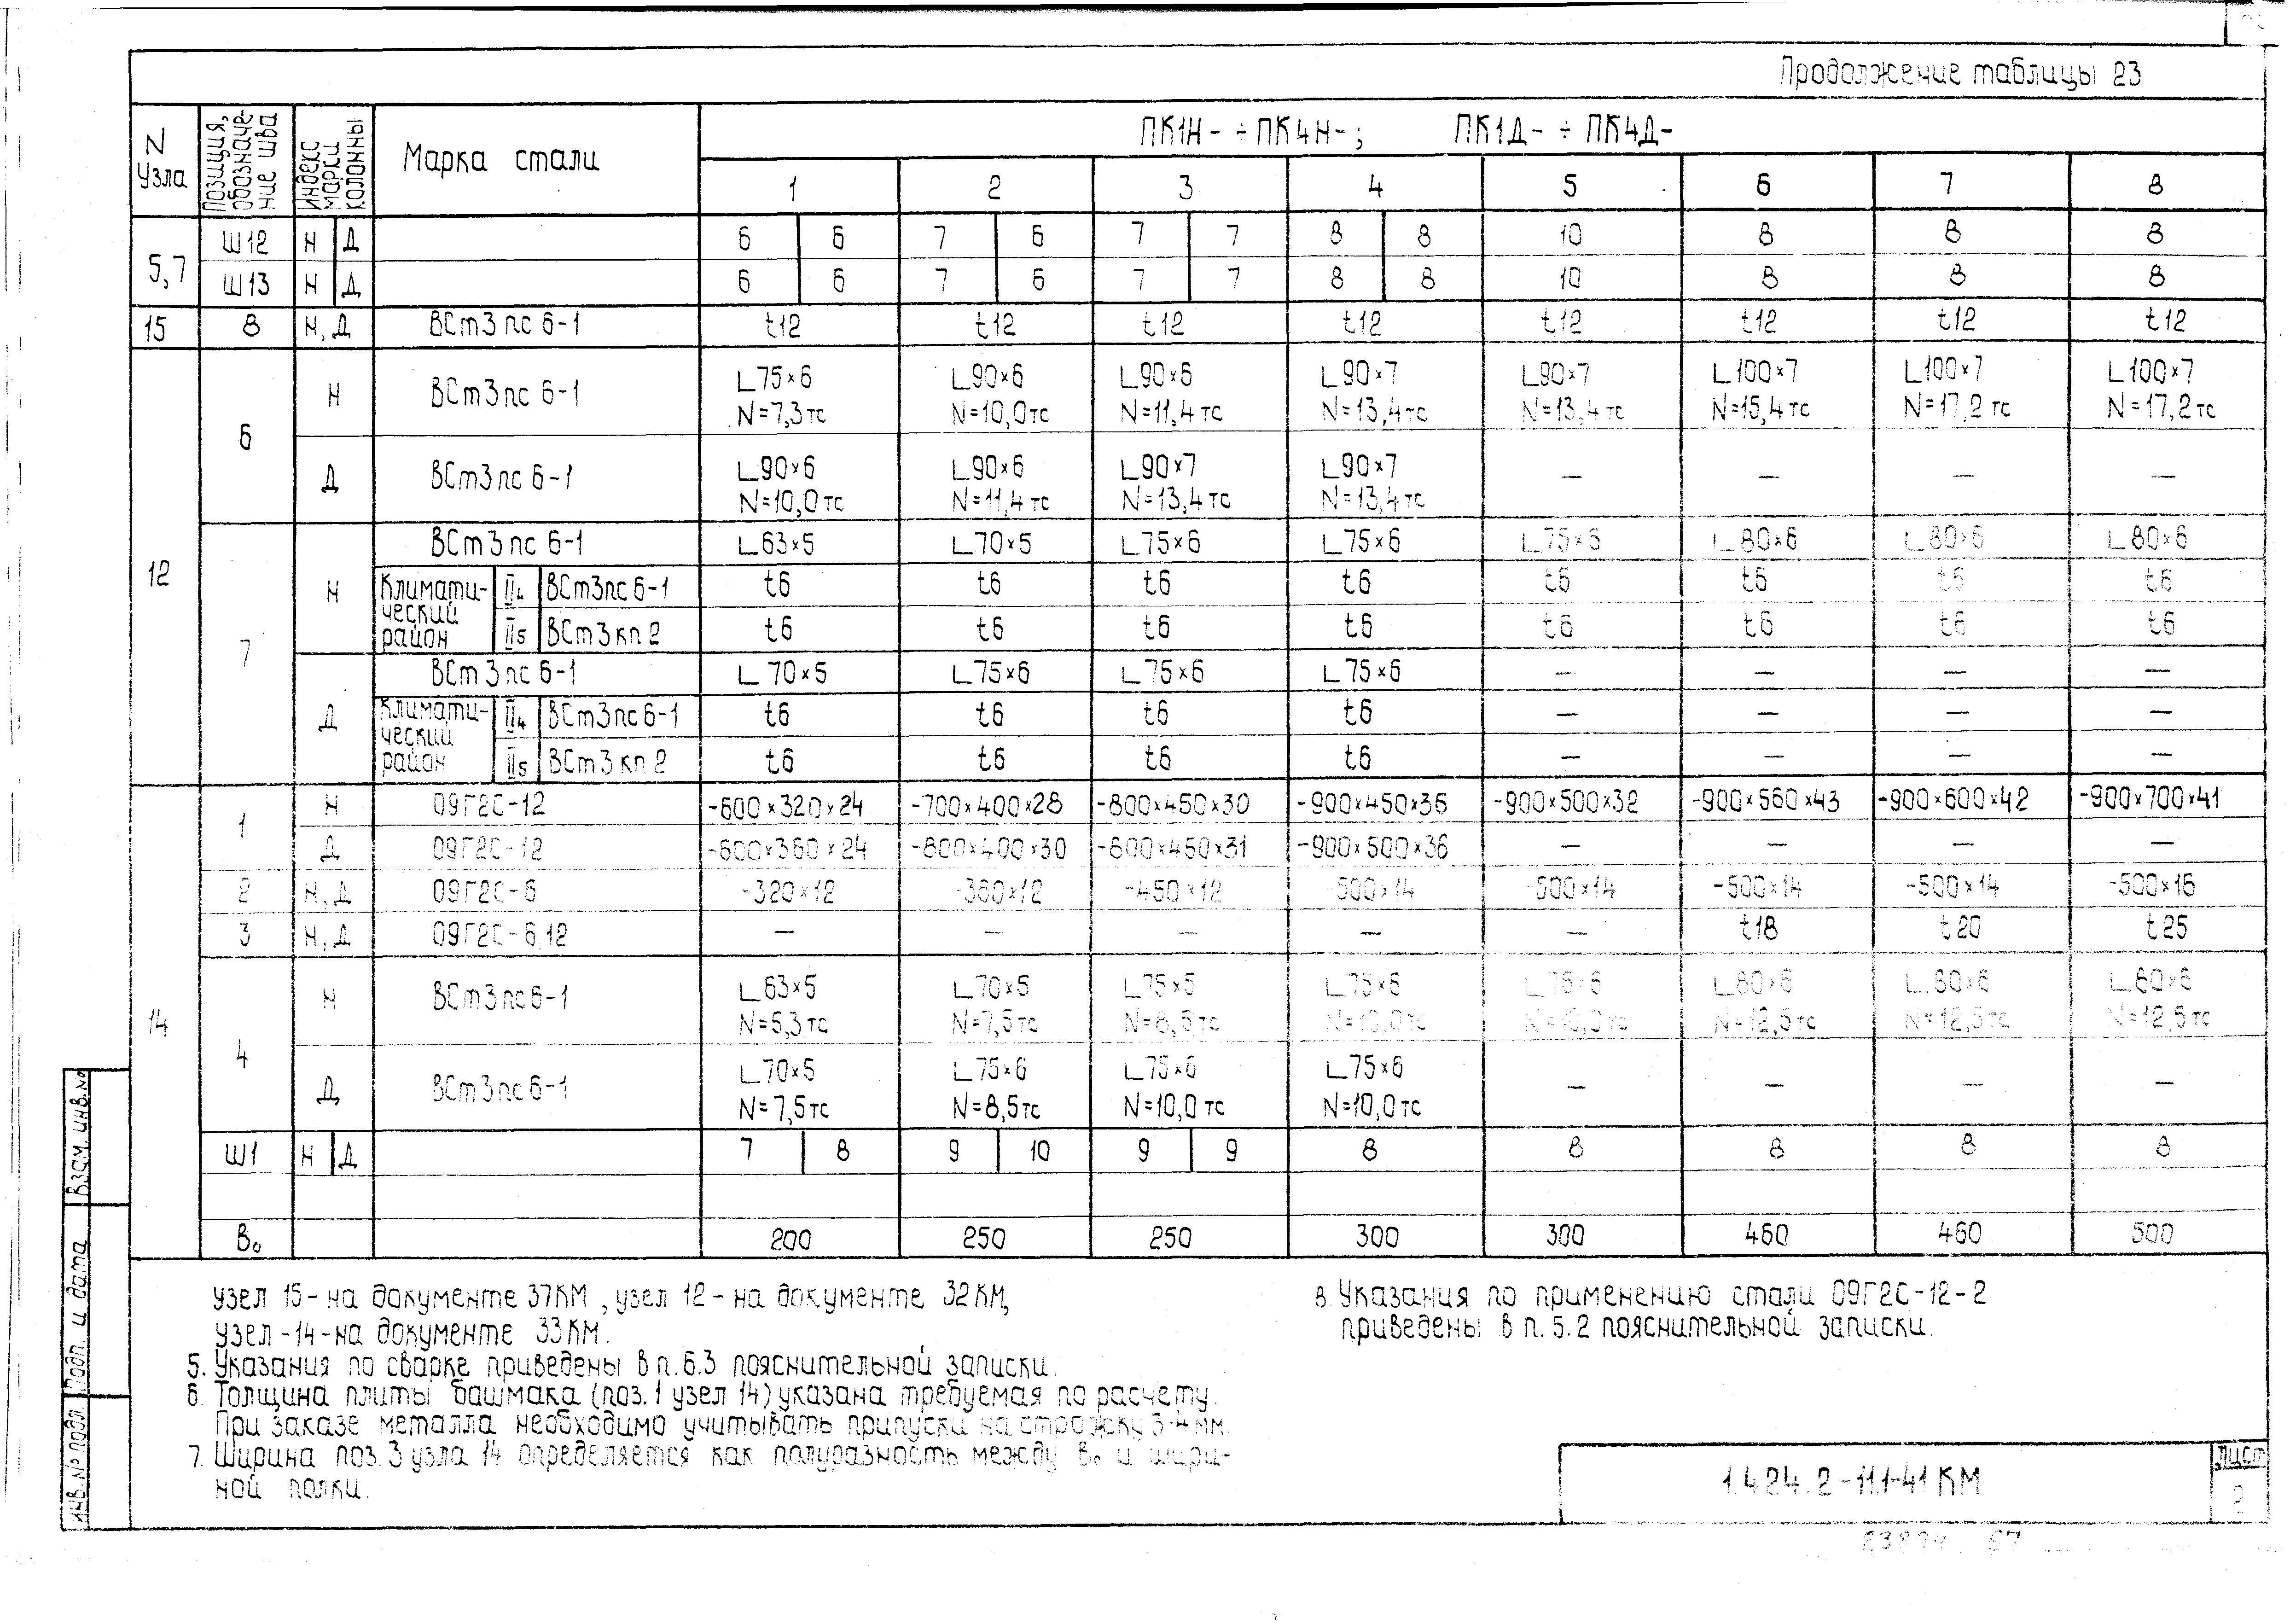 Продолжение таблицы 23
N Узла | Позиция, обозначение шва | Индекс марки колонны | Марка стали | ПК1Н- ÷ ПК4Н-; ПК1Д- ÷ ПК4Д-
1 | 2 | 3 | 4 | 5 | 6 | 7 | 8
5,7 | Ш12 | Н | Д | 6 | 6 | 7 | 6 | 7 | 7 | 8 | 8 | 10 | 8 | 8 | 8
Ш13 | Н | Д | 6 | 6 | 7 | 6 | 7 | 7 | 8 | 8 | 10 | 8 | 8 | 8
15 | 8 | Н, Д | ВСт3пс6-1 | t12 | t12 | t12 | t12 | t12 | t12 | t12 | t12
12 | 6 | Н | ВСт3пс6-1 | ∟75×6 | ∟90×6 | ∟90×6 | ∟90×7 | ∟90×7 | ∟100×7 | ∟100×7 | ∟100×7
N=7,3тс | N=10,0тс | N=11,4тс | N=13,4тс | N=13,4тс | N=15,4тс | N=17,2тс | N=17,2тс
Д | ВСт3пс6-1 | ∟90×6 | ∟90×6 | ∟90×7 | ∟90×7 | — | — | — | —
N=10,0тс | N=11,4тс | N=13,4тс | N=13,4тс
7 | Н | ВСт3пс6-1 | ∟63×5 | ∟70×5 | ∟75×6 | ∟75×6 | ∟75×6 | ∟80×6 | ∟80×6 | ∟80×6
Климатический район | II₄ | ВСт3пс6-1 | t6 | t6 | t6 | t6 | t6 | t6 | t6 | t6
II₅ | ВСт3кп2 | t6 | t6 | t6 | t6 | t6 | t6 | t6 | t6
Д | ВСт3пс6-1 | ∟70×5 | ∟75×6 | ∟75×6 | ∟75×6 | — | — | — | —
Климатический район | II₄ | ВСт3пс6-1 | t6 | t6 | t6 | t6 | — | — | — | —
II₅ | ВСт3кп2 | t6 | t6 | t6 | t6 | — | — | — | —
14 | 1 | Н | 09Г2С-12 | -600×320×24 | -700×400×28 | -800×450×30 | -900×450×36 | -900×500×32 | -900×560×43 | -900×600×42 | -900×700×41
Д | 09Г2С-12 | -600×360×24 | -800×400×30 | -800×450×31 | -900×500×36 | — | — | — | —
2 | Н, Д | 09Г2С-6 | -320×12 | -360×12 | -450×12 | -500×14 | -500×14 | -500×14 | -500×14 | -500×16
3 | Н, Д | 09Г2С-6,12 | — | — | — | — | — | t18 | t20 | t25
4 | Н | ВСт3пс6-1 | ∟63×5 | ∟70×5 | ∟75×5 | ∟75×6 | ∟75×6 | ∟80×6 | ∟80×6 | ∟80×6
N=5,3тс | N=7,5тс | N=8,5тс | N=10,0тс | N=10,0тс | N=12,5тс | N=12,5тс | N=12,5тс
Д | ВСт3пс6-1 | ∟70×5 | ∟75×6 | ∟75×6 | ∟75×6 | — | — | — | —
N=7,5тс | N=8,5тс | N=10,0тс | N=10,0тс
Ш1 | Н | Д | 7 | 8 | 9 | 10 | 9 | 9 | 8 | 8 | 8 | 8 | 8
В₀ | 200 | 250 | 250 | 300 | 300 | 460 | 460 | 500
узел 15-на документе 37КМ, узел 12-на документе 32КМ,
узел-14-на документе 33КМ.
5. Указания по сварке приведены в п.6.3 пояснительной записки.
6. Толщина плиты башмака (поз.1 узел 14) указана требуемая по расчету.
При заказе металла необходимо учитывать припуски на строжку 3-4мм.
7. Ширина поз.3 узла 14 определяется как полуразность между В₀ и шири-
ной полки.
8 Указания по применению стали 09Г2С-12-2
приведены в п.5.2 пояснительной записки.
Взам. инв.№
Подп. и дата
Инв.№ подл.
1.424.2-11.1-41КМ
Лист
2